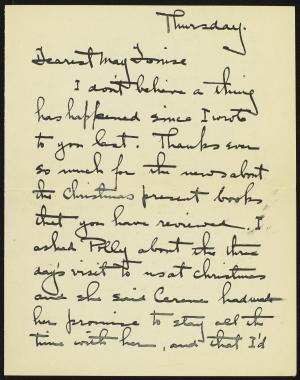 Thursday.
Dearest May Louise
I don't believe a thing
has happened since I wrote
to you last. Thanks ever
so much for the news about
the Christmas present books
that you have reviewed. I
asked Polly about the three
day's visit to us at Christmas
and she said had made
her promise to stay all the
time with her, and that I'd